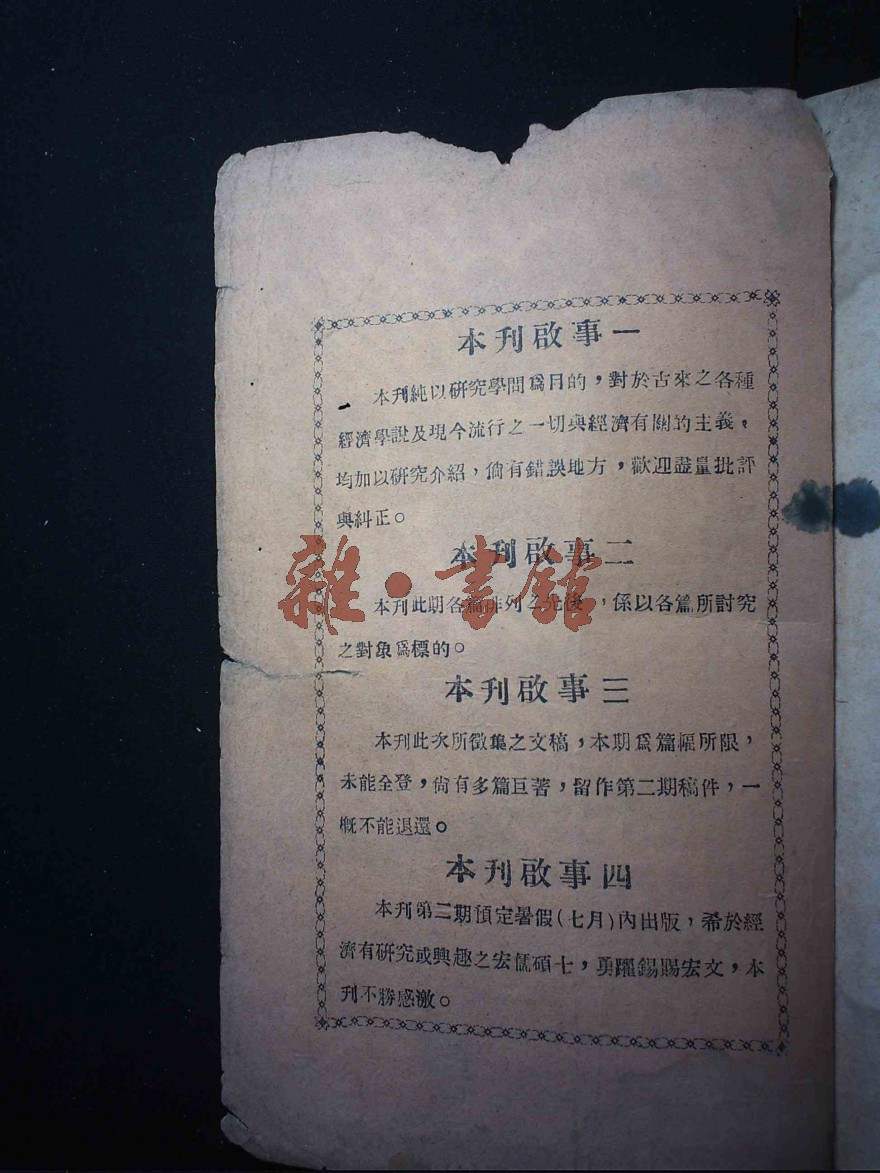 本刊啟事一
本刊純以研究學問爲目的，對於古來之各種
經濟學說及現今流行之一切與經濟有關的主義，
均加以研究介紹，倘有錯誤地方，歡迎盡量批評
與糾正。
本刊啟事二
本刊此期各篇排列之先後，係以各篇所討究
之對象爲標的。
本刊啟事三
本刊此次所徵集之文稿，本期爲篇幅所限，
未能全登，尙有多篇巨著，留作第二期稿件，一
槪不能退還。
本刊啟事四
本刊第二期預定暑假(七月)內出版，希於經
濟有研究或興趣之宏儒碩士，勇躍錫賜宏文，本
刊不勝感激。
雜·書館